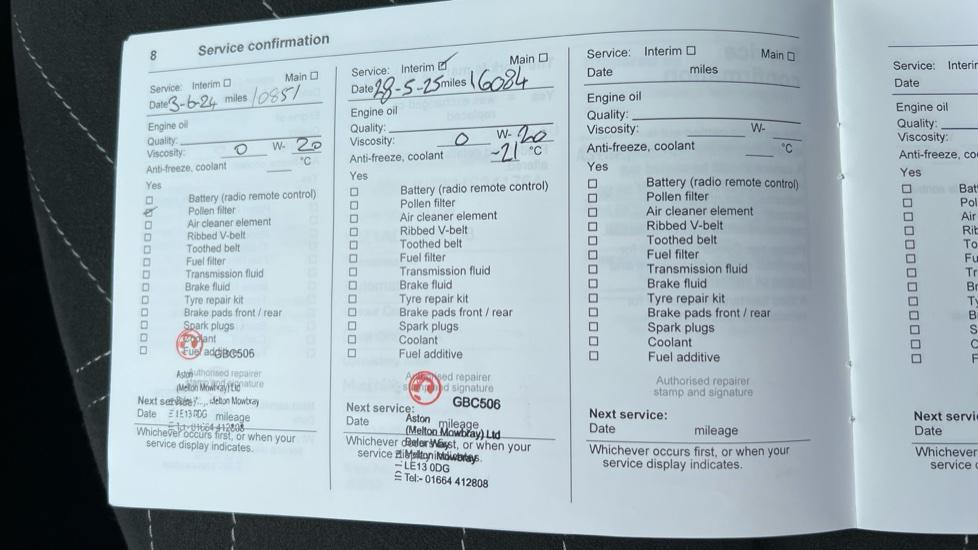 8 Service confirmation
Service: Interim Main
Date 3-6-24 miles 10851
Engine oil
Quality:
Viscosity: 0 W- 20
Anti-freeze, coolant °C
Yes
Battery (radio remote control)
Pollen filter
Air cleaner element
Ribbed V-belt
Toothed belt
Fuel filter
Transmission fluid
Brake fluid
Tyre repair kit
Brake pads front / rear
Spark plugs
Coolant
Fuel additive
GBC506
Authorised repairer
stamp and signature
Aston
(Melton Mowbray) Ltd
Next service:
Melton Mowbray
Date mileage
LE13 0DG
01664 412808
Whichever occurs first, or when your
service display indicates.
Service: Interim Main
Date 28-5-25 miles 16084
Engine oil
Quality:
Viscosity: 0 W- 20
Anti-freeze, coolant -21 °C
Yes
Battery (radio remote control)
Pollen filter
Air cleaner element
Ribbed V-belt
Toothed belt
Fuel filter
Transmission fluid
Brake fluid
Tyre repair kit
Brake pads front / rear
Spark plugs
Coolant
Fuel additive
Authorised repairer
stamp and signature
GBC506
Next service:
Date mileage
Aston
(Melton Mowbray) Ltd
Whichever occurs first, or when your
service display indicates.
Melton Mowbray
LE13 0DG
Tel:- 01664 412808
Service: Interim Main
Date miles
Engine oil
Quality:
Viscosity: W-
Anti-freeze, coolant °C
Yes
Battery (radio remote control)
Pollen filter
Air cleaner element
Ribbed V-belt
Toothed belt
Fuel filter
Transmission fluid
Brake fluid
Tyre repair kit
Brake pads front / rear
Spark plugs
Coolant
Fuel additive
Authorised repairer
stamp and signature
Next service:
Date mileage
Whichever occurs first, or when your
service display indicates.
Service: Interim
Date
Engine oil
Quality:
Viscosity:
Anti-freeze, co
Yes
Bat
Pol
Air
Rib
To
Fu
Tr
Br
Ty
B
S
C
F
Next servi
Date
Whichever
service